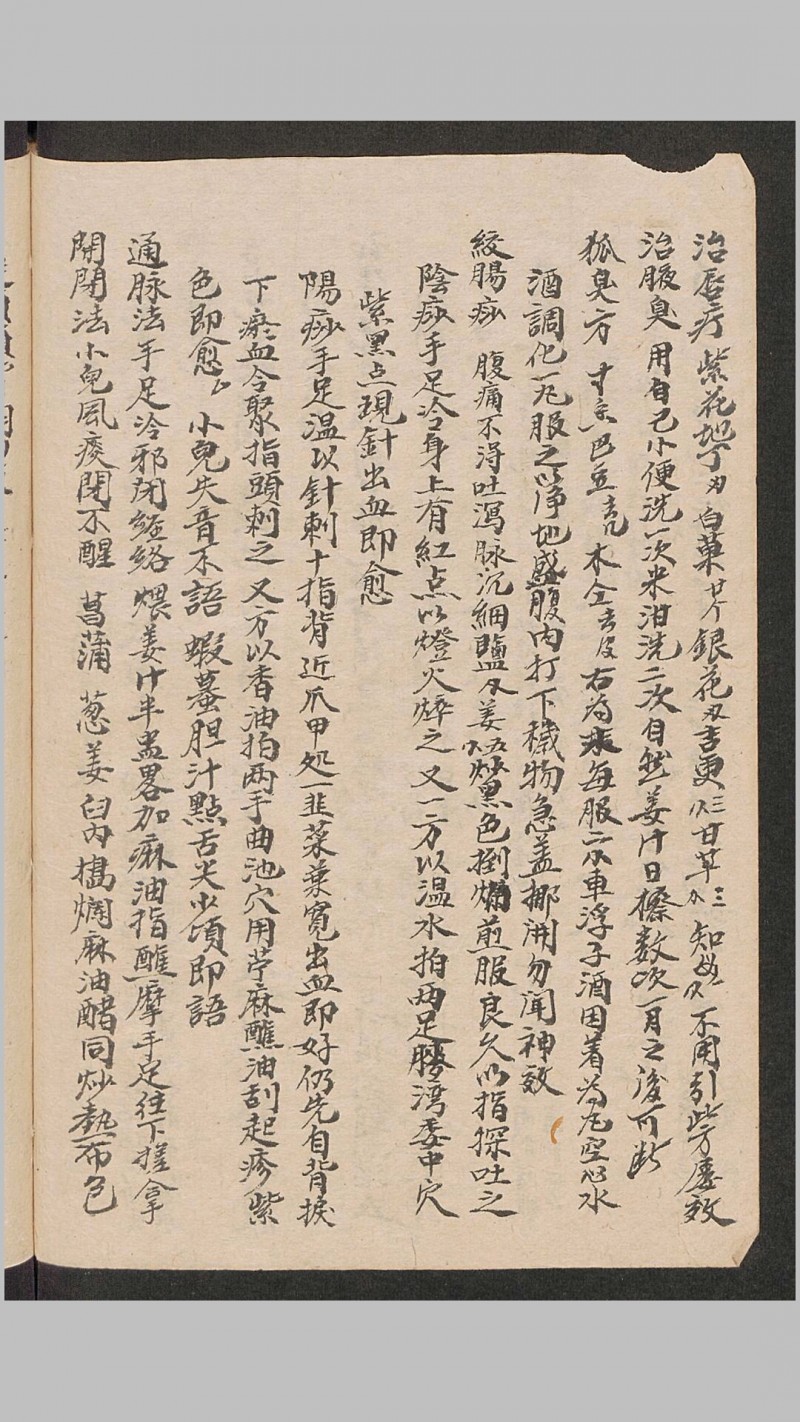 治唇疔 紫花地丁 白菓 銀花 吉更 甘草 知母 不用引 此方屡效
治腋臭 用自己小便洗一次米泔洗二次自然姜汁日擦数次一月之後可断
狐臭方 寸 巴豆去壳 木仝去皮 右為末每服二 車浮子酒田着為丸空心水
酒調化一丸服之以净地盛腹内打下穢物急盖挪開勿聞神效
絞腸痧 腹痛不淂吐瀉脉沉細鹽 姜 炒黑色捯爛煎服良久以指探吐之
陰痧手足冷身上有紅点以燈火焠之 又一方以温水拍两足膝湾委中穴
紫黑点現針出血即愈
陽痧手足温以針刺十指背近爪甲処一韭菜葉寛出血即好仍先自背捩
下瘀血令聚指頭刺之 又方以香油拍两手曲池穴用苧麻蘸油刮起疹紫
色即愈 小兒失音不語 蝦蟇胆汁點舌尖少頃即語
通脉法手足冷邪闭経絡 煨姜汁半盏畧加麻油指蘸摩手足往下搓拿
開閉法小兒風痰閉不醒 菖蒲 葱 姜 臼內搗爛麻油醋同炒熱布包